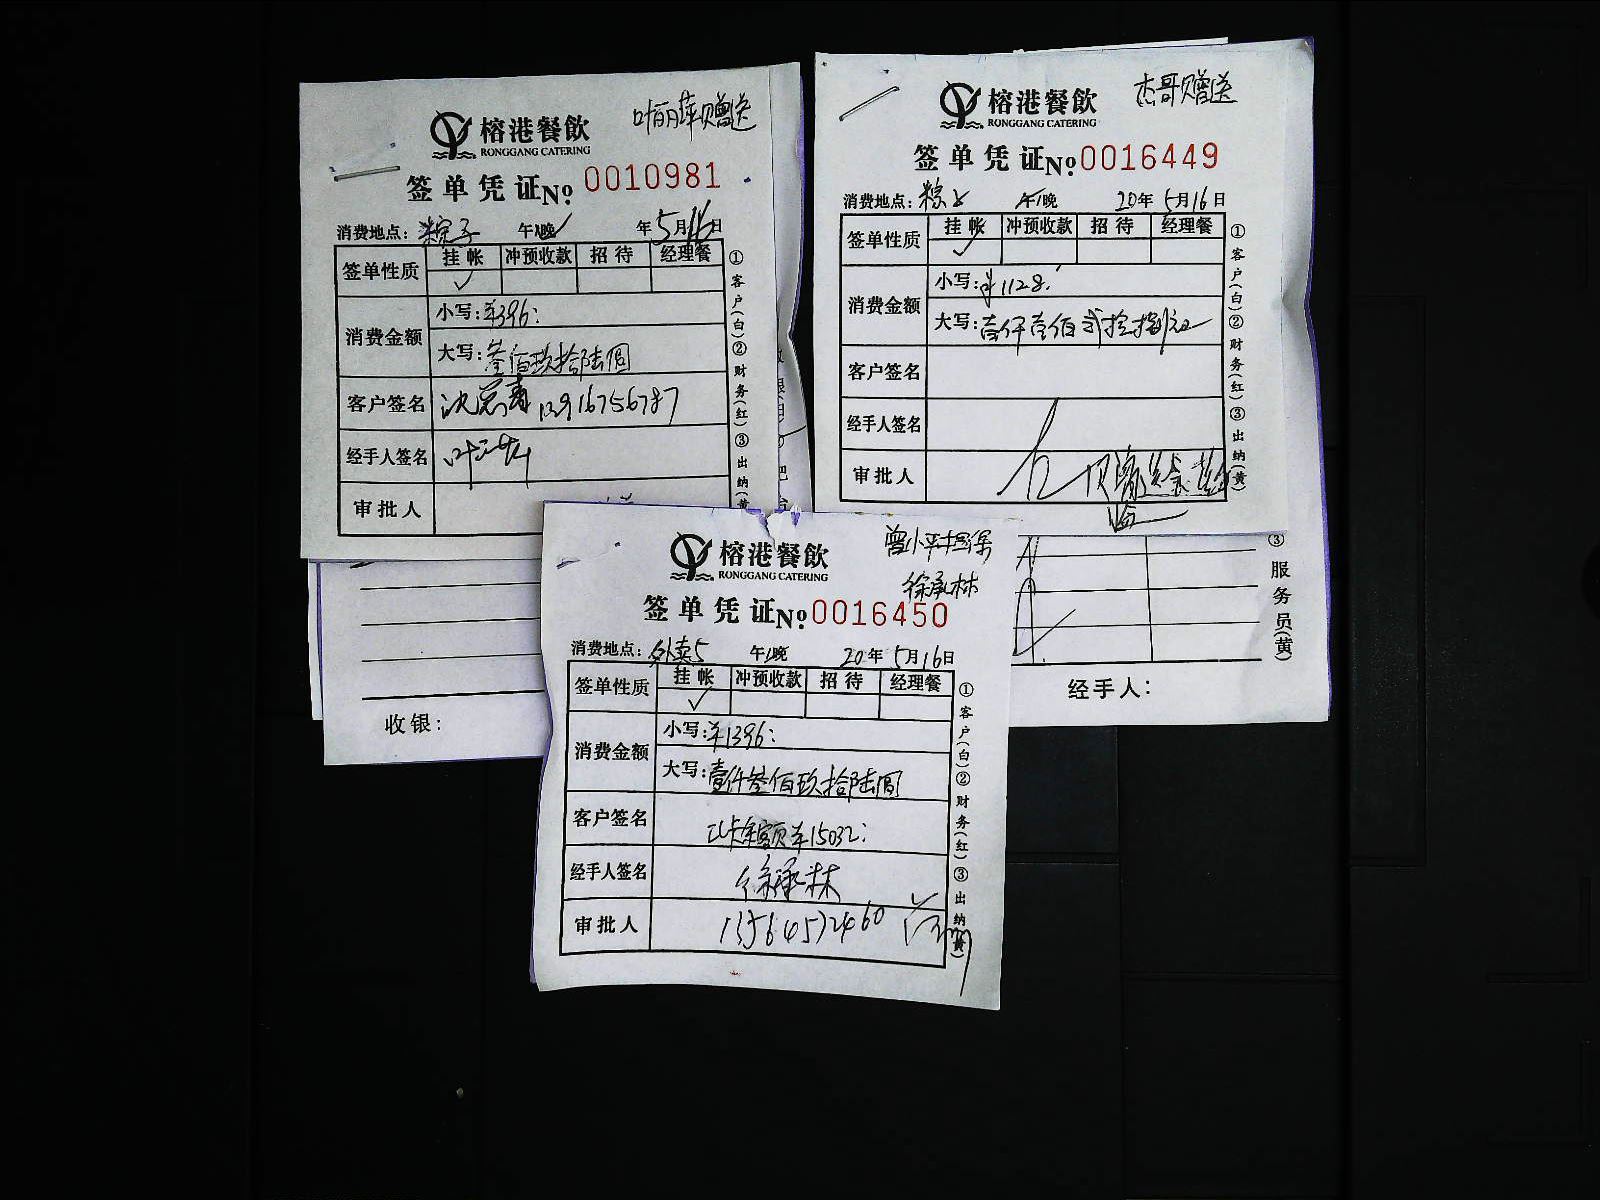 榕港餐飲
RONGGANG CATERING
赠送
签单凭证 No. 0010981
消费地点: 粽子 午\晚 年5月16日
签单性质 挂帐 冲预收款 招待 经理餐
✓
消费金额 小写: ¥396:
大写: 叁佰玖拾陆圆
客户签名 13916756787
经手人签名
审批人
①客户(白)②财务(红)③出纳(黄
榕港餐飲
RONGGANG CATERING
杰哥赠送
签单凭证 No. 0016449
消费地点: 粽子 午\晚 20年5月16日
签单性质 挂帐 冲预收款 招待 经理餐
✓
消费金额 小写: ¥1128.
大写: 壹仟壹佰贰拾捌元
客户签名
经手人签名
审批人
①客户(白)②财务(红)③出纳(黄)
榕港餐飲
RONGGANG CATERING
曾小平担保
徐承林
签单凭证 No. 0016450
消费地点: 外卖5 午\晚 20年5月16日
签单性质 挂帐 冲预收款 招待 经理餐
✓
消费金额 小写: ¥1396:
大写: 壹仟叁佰玖拾陆圆
客户签名 卡余额¥15032:
经手人签名 徐承林
审批人 13564572460
①客户(白)②财务(红)③出纳(黄)
收银:
③服务员(黄)
经手人: